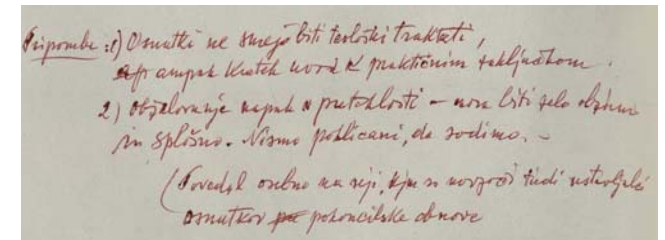 Pripombe: 1) Osnutki ne smejo biti teološki traktati,
ampak kratek uvod k praktičnim zaključkom.
2) obžalovanje napak v preteklosti – mora biti zelo obzirno
in splošno. Nismo poklicani, da sodimo. –
(Povedal osebno na seji, kjer so navzoči tudi sestavljalci
osnutkov pokoncilske obnove